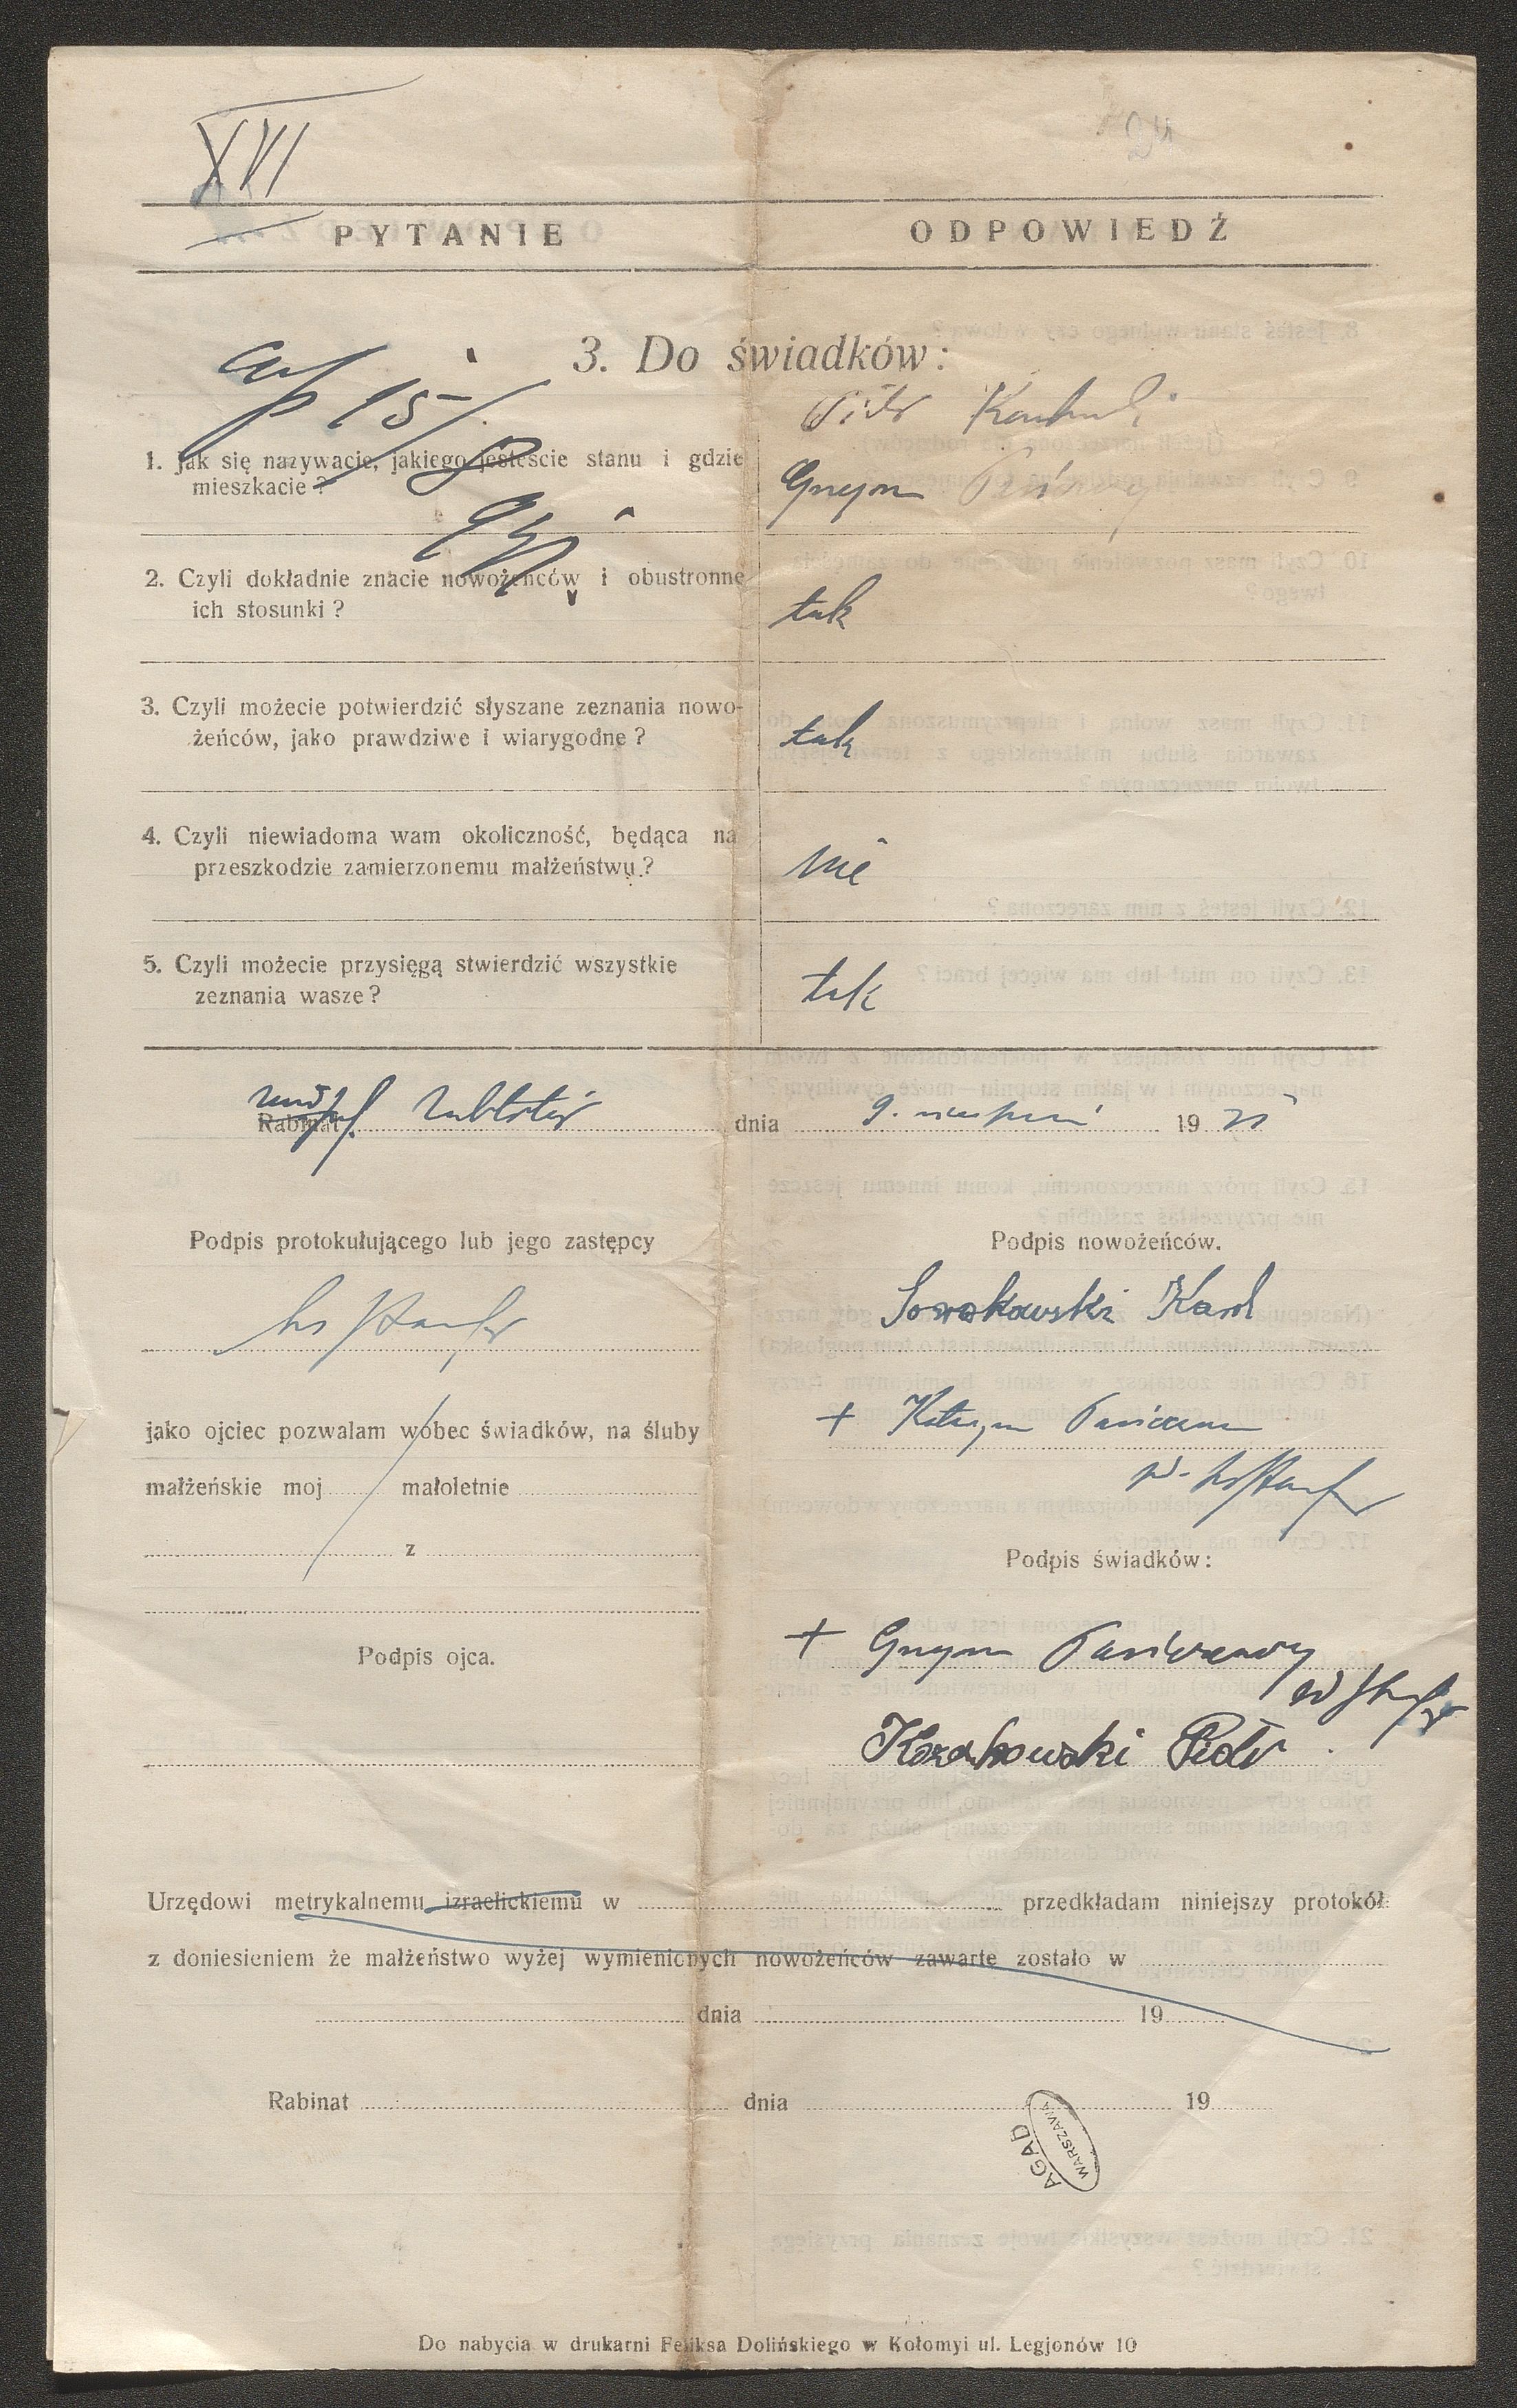 XVI
24
PYTANIE ODPOWIEDŹ
3. Do świadków:
15/
Piotr
1. Jak się nazywacie, jakiego jesteście stanu i gdzie
mieszkacie?
2. Czyli dokładnie znacie nowożeńców i obustronne
ich stosunki?
tak
3. Czyli możecie potwierdzić słyszane zeznania nowo-
żeńców, jako prawdziwe i wiarygodne?
tak
4. Czyli niewiadoma wam okoliczność, będąca na
przeszkodzie zamierzonemu małżeństwu?
nie
5. Czyli możecie przysięgą stwierdzić wszystkie
zeznania wasze?
tak
Rabinat dnia 9. 19
Podpis protokułującego lub jego zastępcy
Podpis nowożeńców.
Sorokowski Karol
jako ojciec pozwalam wobec świadków, na śluby
+ Katarzyna
małżeńskie moj małoletnie
z
Podpis świadków:
Podpis ojca.
+
Kozakowski Piotr
Urzędowi metrykalnemu izraelickiemu w przedkładam niniejszy protokół
z doniesieniem że małżeństwo wyżej wymienionych nowożeńców zawarte zostało w
dnia 19
Rabinat dnia 19
AGAD
WARSZAWA
Do nabycia w drukarni Feliksa Dolińskiego w Kołomyi ul. Legjonów 10